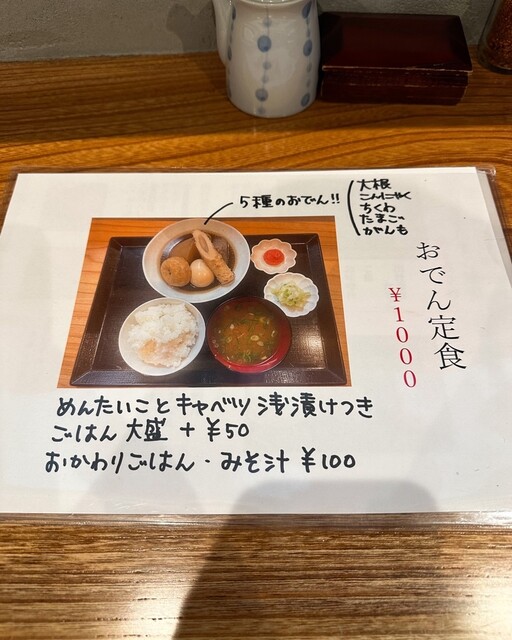 5種のおでん!!
大根
こんにゃく
ちくわ
たまご
がんも
おでん定食
¥1000
めんたいことキャベツ浅漬けつき
ごはん大盛+¥50
おかわりごはん・みそ汁 ¥100